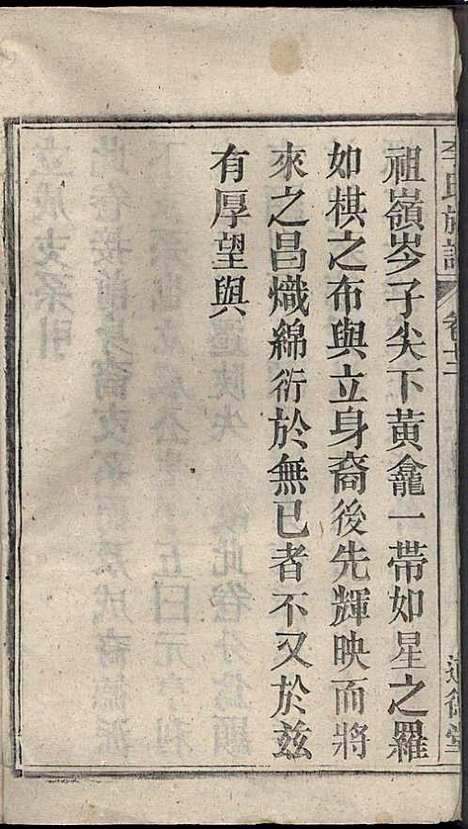 李氏族譜
卷十二
祖嶺岑子尖下黃龕一帶如星之羅
如棋之布與立身裔後先輝映而將
來之昌熾綿衍於無已者不又於茲
有厚望與